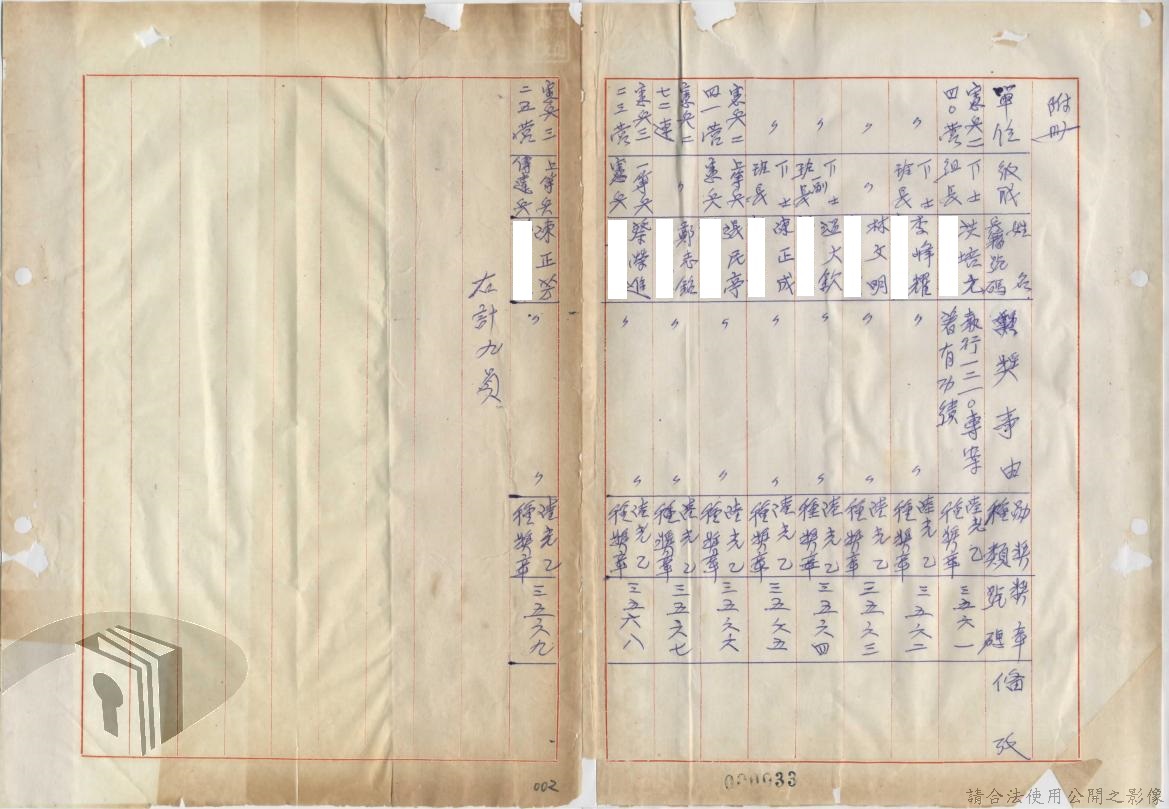 附冊
單位
級職
姓名
兵籍號碼
勳獎事由
勳獎種類
獎章號碼
備攷
憲兵二四〇營
下士組長
洪培元
執行一二一〇專案著有功績
陸光乙種獎章
三五六一
〃
下士班長
李峰耀
〃
〃
陸光乙種獎章
三五六二
〃
〃
林文明
〃
〃
陸光乙種獎章
三五六三
〃
下士副班長
大欽
〃
〃
陸光乙種獎章
三五六四
〃
下士班長
陳正成
〃
〃
陸光乙種獎章
三五六五
憲兵二四一營
上等兵憲兵
張民亭
〃
〃
陸光乙種獎章
三五六六
憲兵二七二連
〃
鄭志銘
〃
〃
陸光乙種獎章
三五六七
憲兵三二三營
一等兵憲兵
蔡榮進
〃
〃
陸光乙種獎章
三五六八
憲兵三二五營
上等兵傳達兵
陳正芳
〃
〃
陸光乙種獎章
三五六九
右計九員
002
000033
請合法使用公開之影像